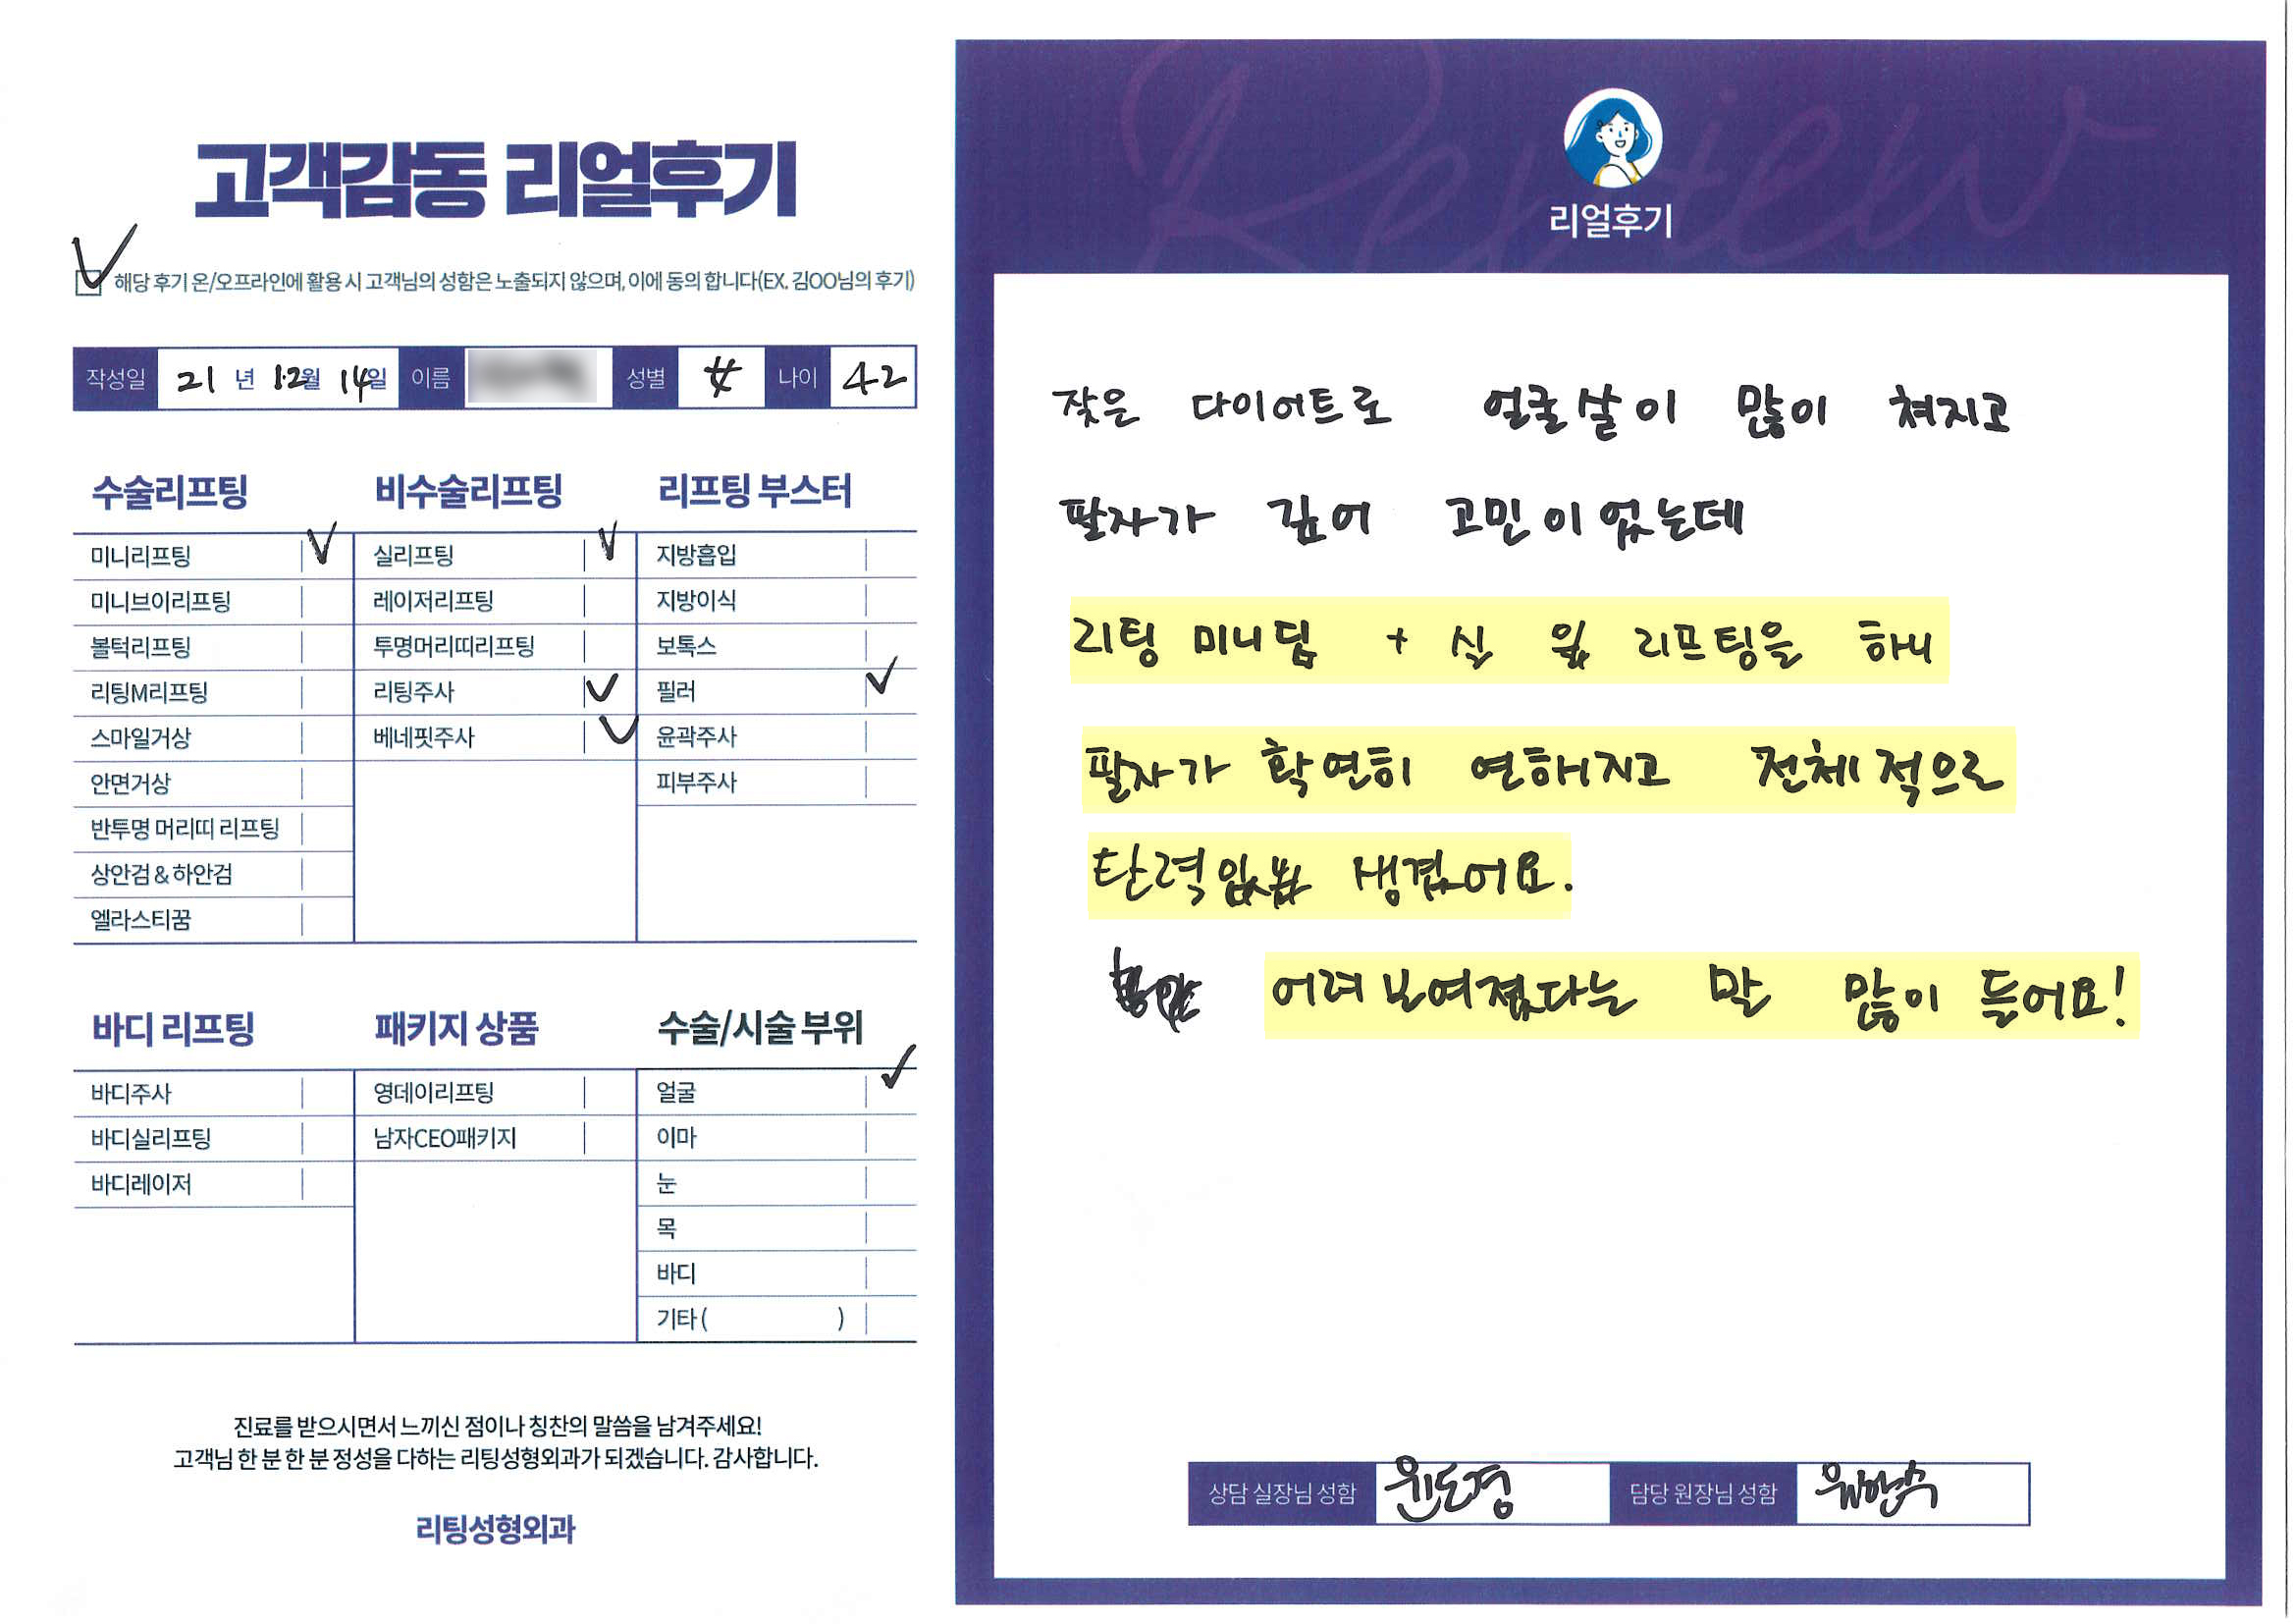 고객감동 리얼후기
해당 후기 온/오프라인에 활용 시 고객님의 성함은 노출되지 않으며, 이에 동의 합니다(EX. 김OO님의 후기)
작성일 21 년 12월 14일 이름 성별 女 나이 42
수술리프팅
미니리프팅
미니브이리프팅
볼턱리프팅
리팅M리프팅
스마일거상
안면거상
반투명 머리띠 리프팅
상안검 & 하안검
엘라스티꿈
비수술리프팅
실리프팅
레이저리프팅
투명머리띠리프팅
리팅주사
베네핏주사
리프팅 부스터
지방흡입
지방이식
보톡스
필러
윤곽주사
피부주사
바디 리프팅
바디주사
바디실리프팅
바디레이저
패키지 상품
영데이리프팅
남자CEO패키지
수술/시술 부위
얼굴
이마
눈
목
바디
기타 ( )
진료를 받으시면서 느끼신 점이나 칭찬의 말씀을 남겨주세요!
고객님 한 분 한 분 정성을 다하는 리팅성형외과가 되겠습니다. 감사합니다.
리팅성형외과
Review
리얼후기
잦은 다이어트로 얼굴살이 많이 쳐지고
팔자가 깊어 고민이었는데
리팅 미니딥 + 실 리프팅을 하니
팔자가 확연히 연해지고 전체적으로
탄력 생겼어요.
어려보여졌다는 말 많이 들어요!
상담 실장님 성함 윤도경
담당 원장님 성함